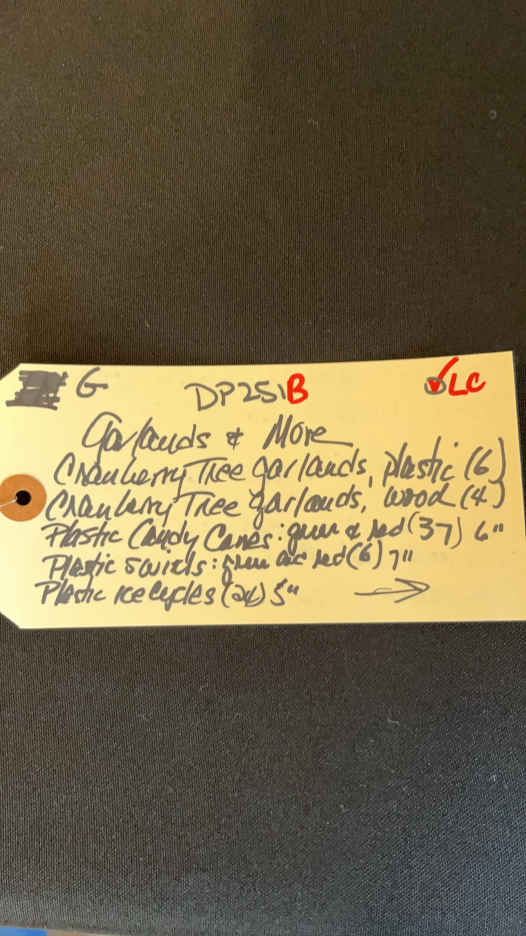 G DP251B LC
Garlands & More
Cranberry Tree garlands, plastic (6)
Cranberry Tree garlands, wood (4)
Plastic Candy Canes: green & red (37) 6"
Plastic swirls: green red (6) 7"
Plastic Ice Cycles (24) 5"